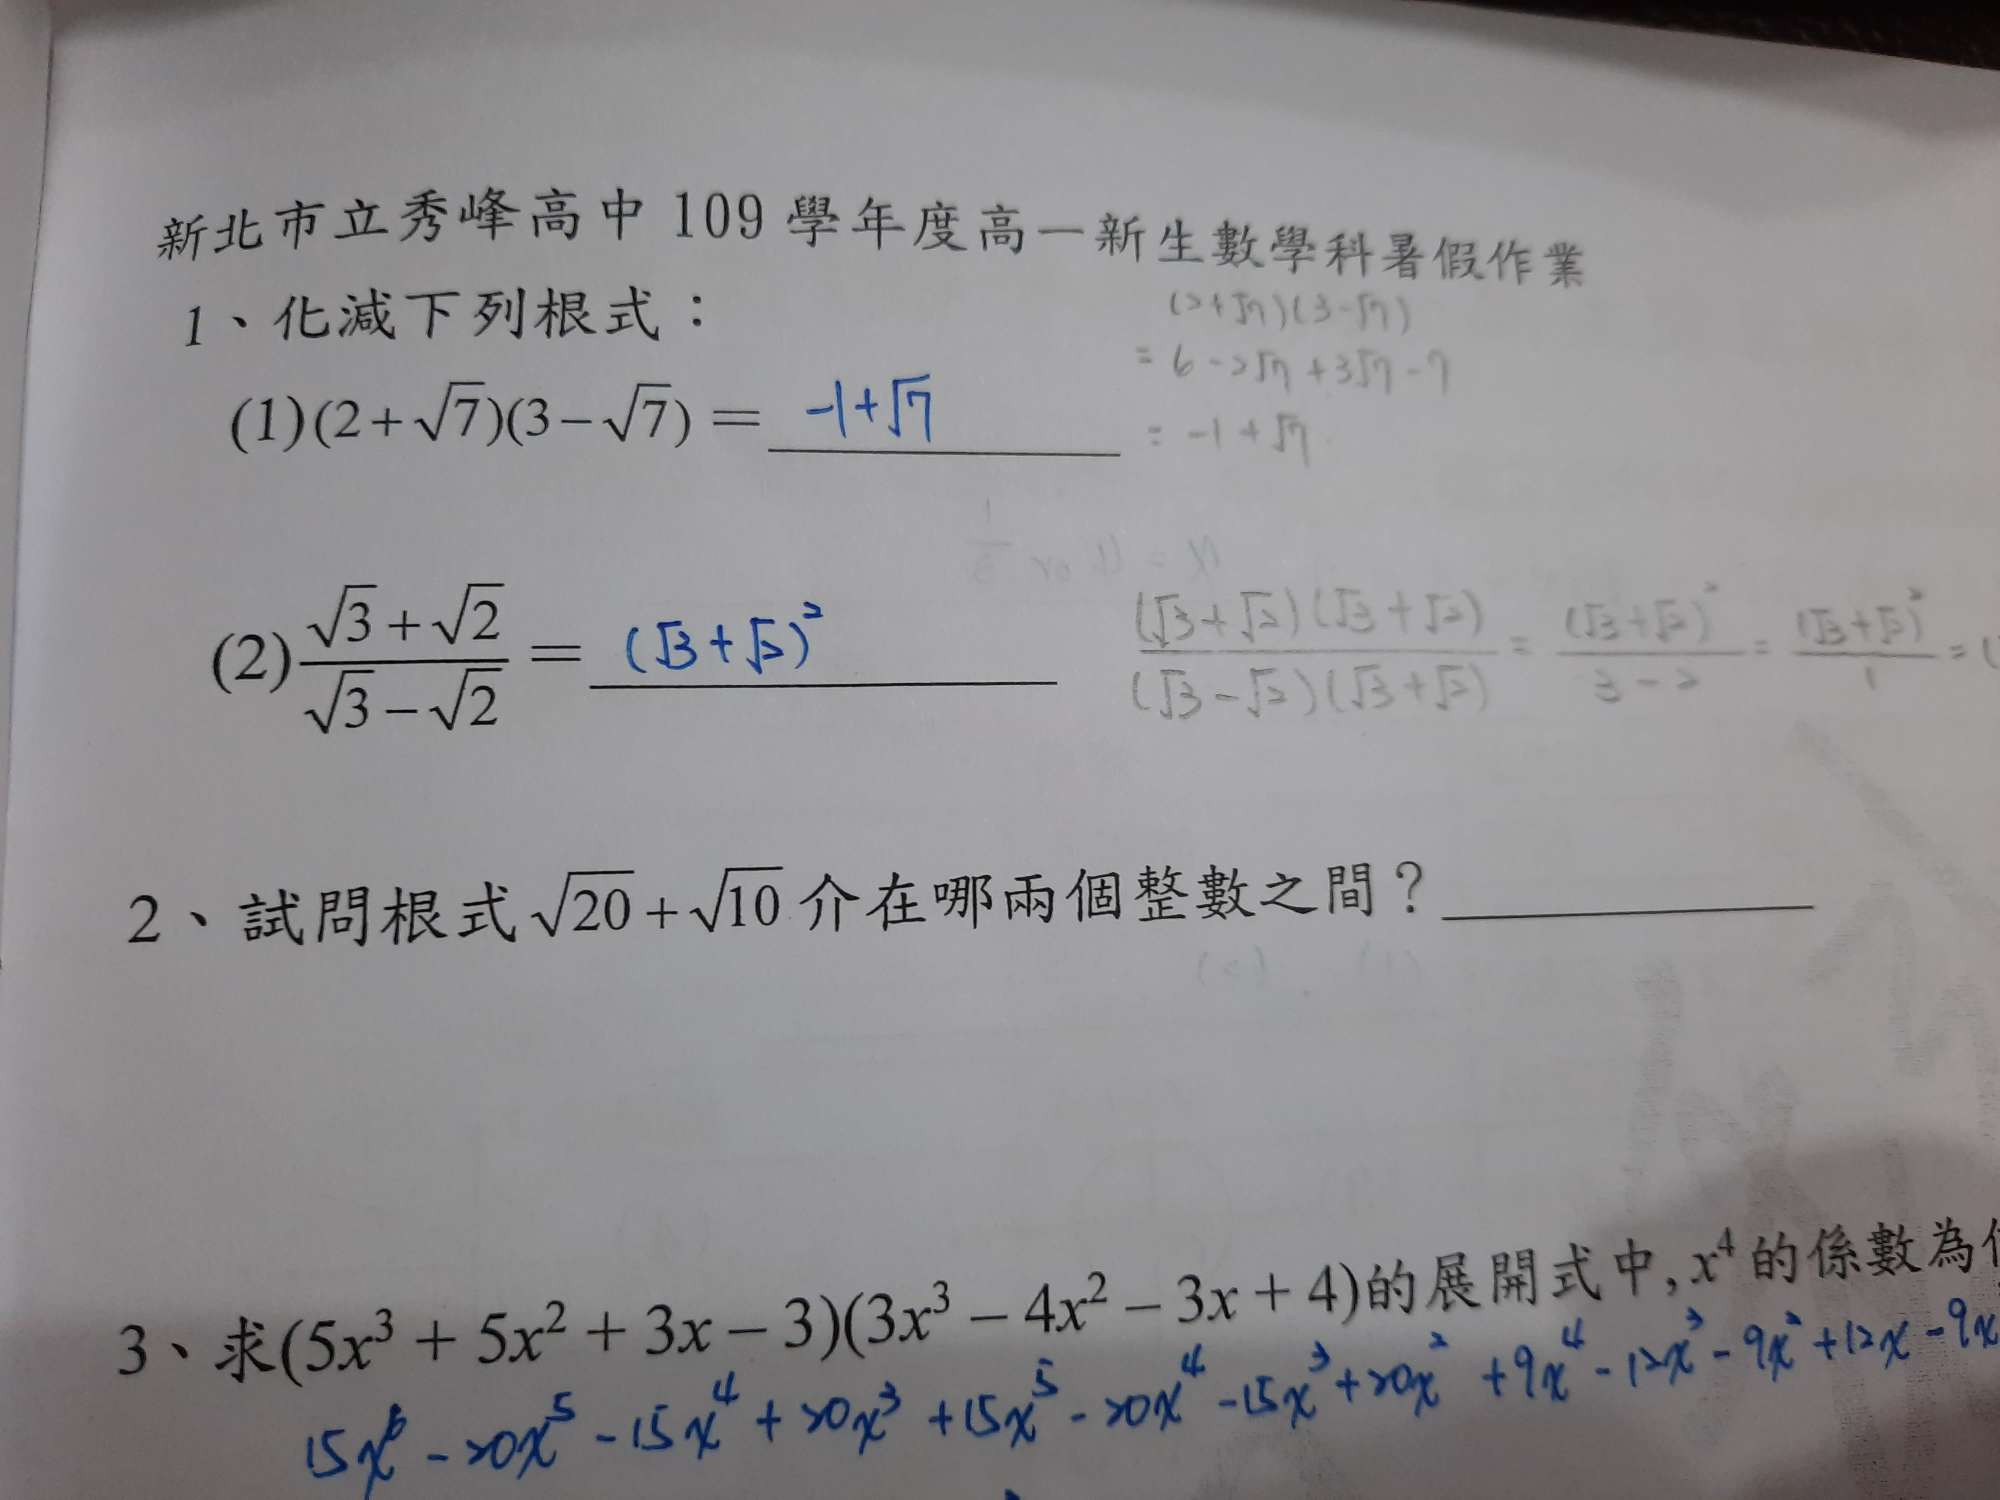 新北市立秀峰高中 109 學年度高一新生數學科暑假作業
1、化減下列根式：
(2+√7)(3-√7)
= 6-2√7+3√7-7
= -1+√7
(1)(2+√7)(3-√7)= -1+√7
(2)(√3+√2)/(√3-√2)= (√3+√2)²
(√3+√2)(√3+√2)/(√3-√2)(√3+√2) = (√3+√2)²/3-2 = (√3+√2)²/1 = (
2、試問根式√20+√10介在哪兩個整數之間？
3、求(5x³+5x²+3x-3)(3x³-4x²-3x+4)的展開式中,x⁴的係數為
15x⁶-20x⁵-15x⁴+20x³+15x⁵-20x⁴-15x³+20x²+9x⁴-12x³-9x²+12x-9x